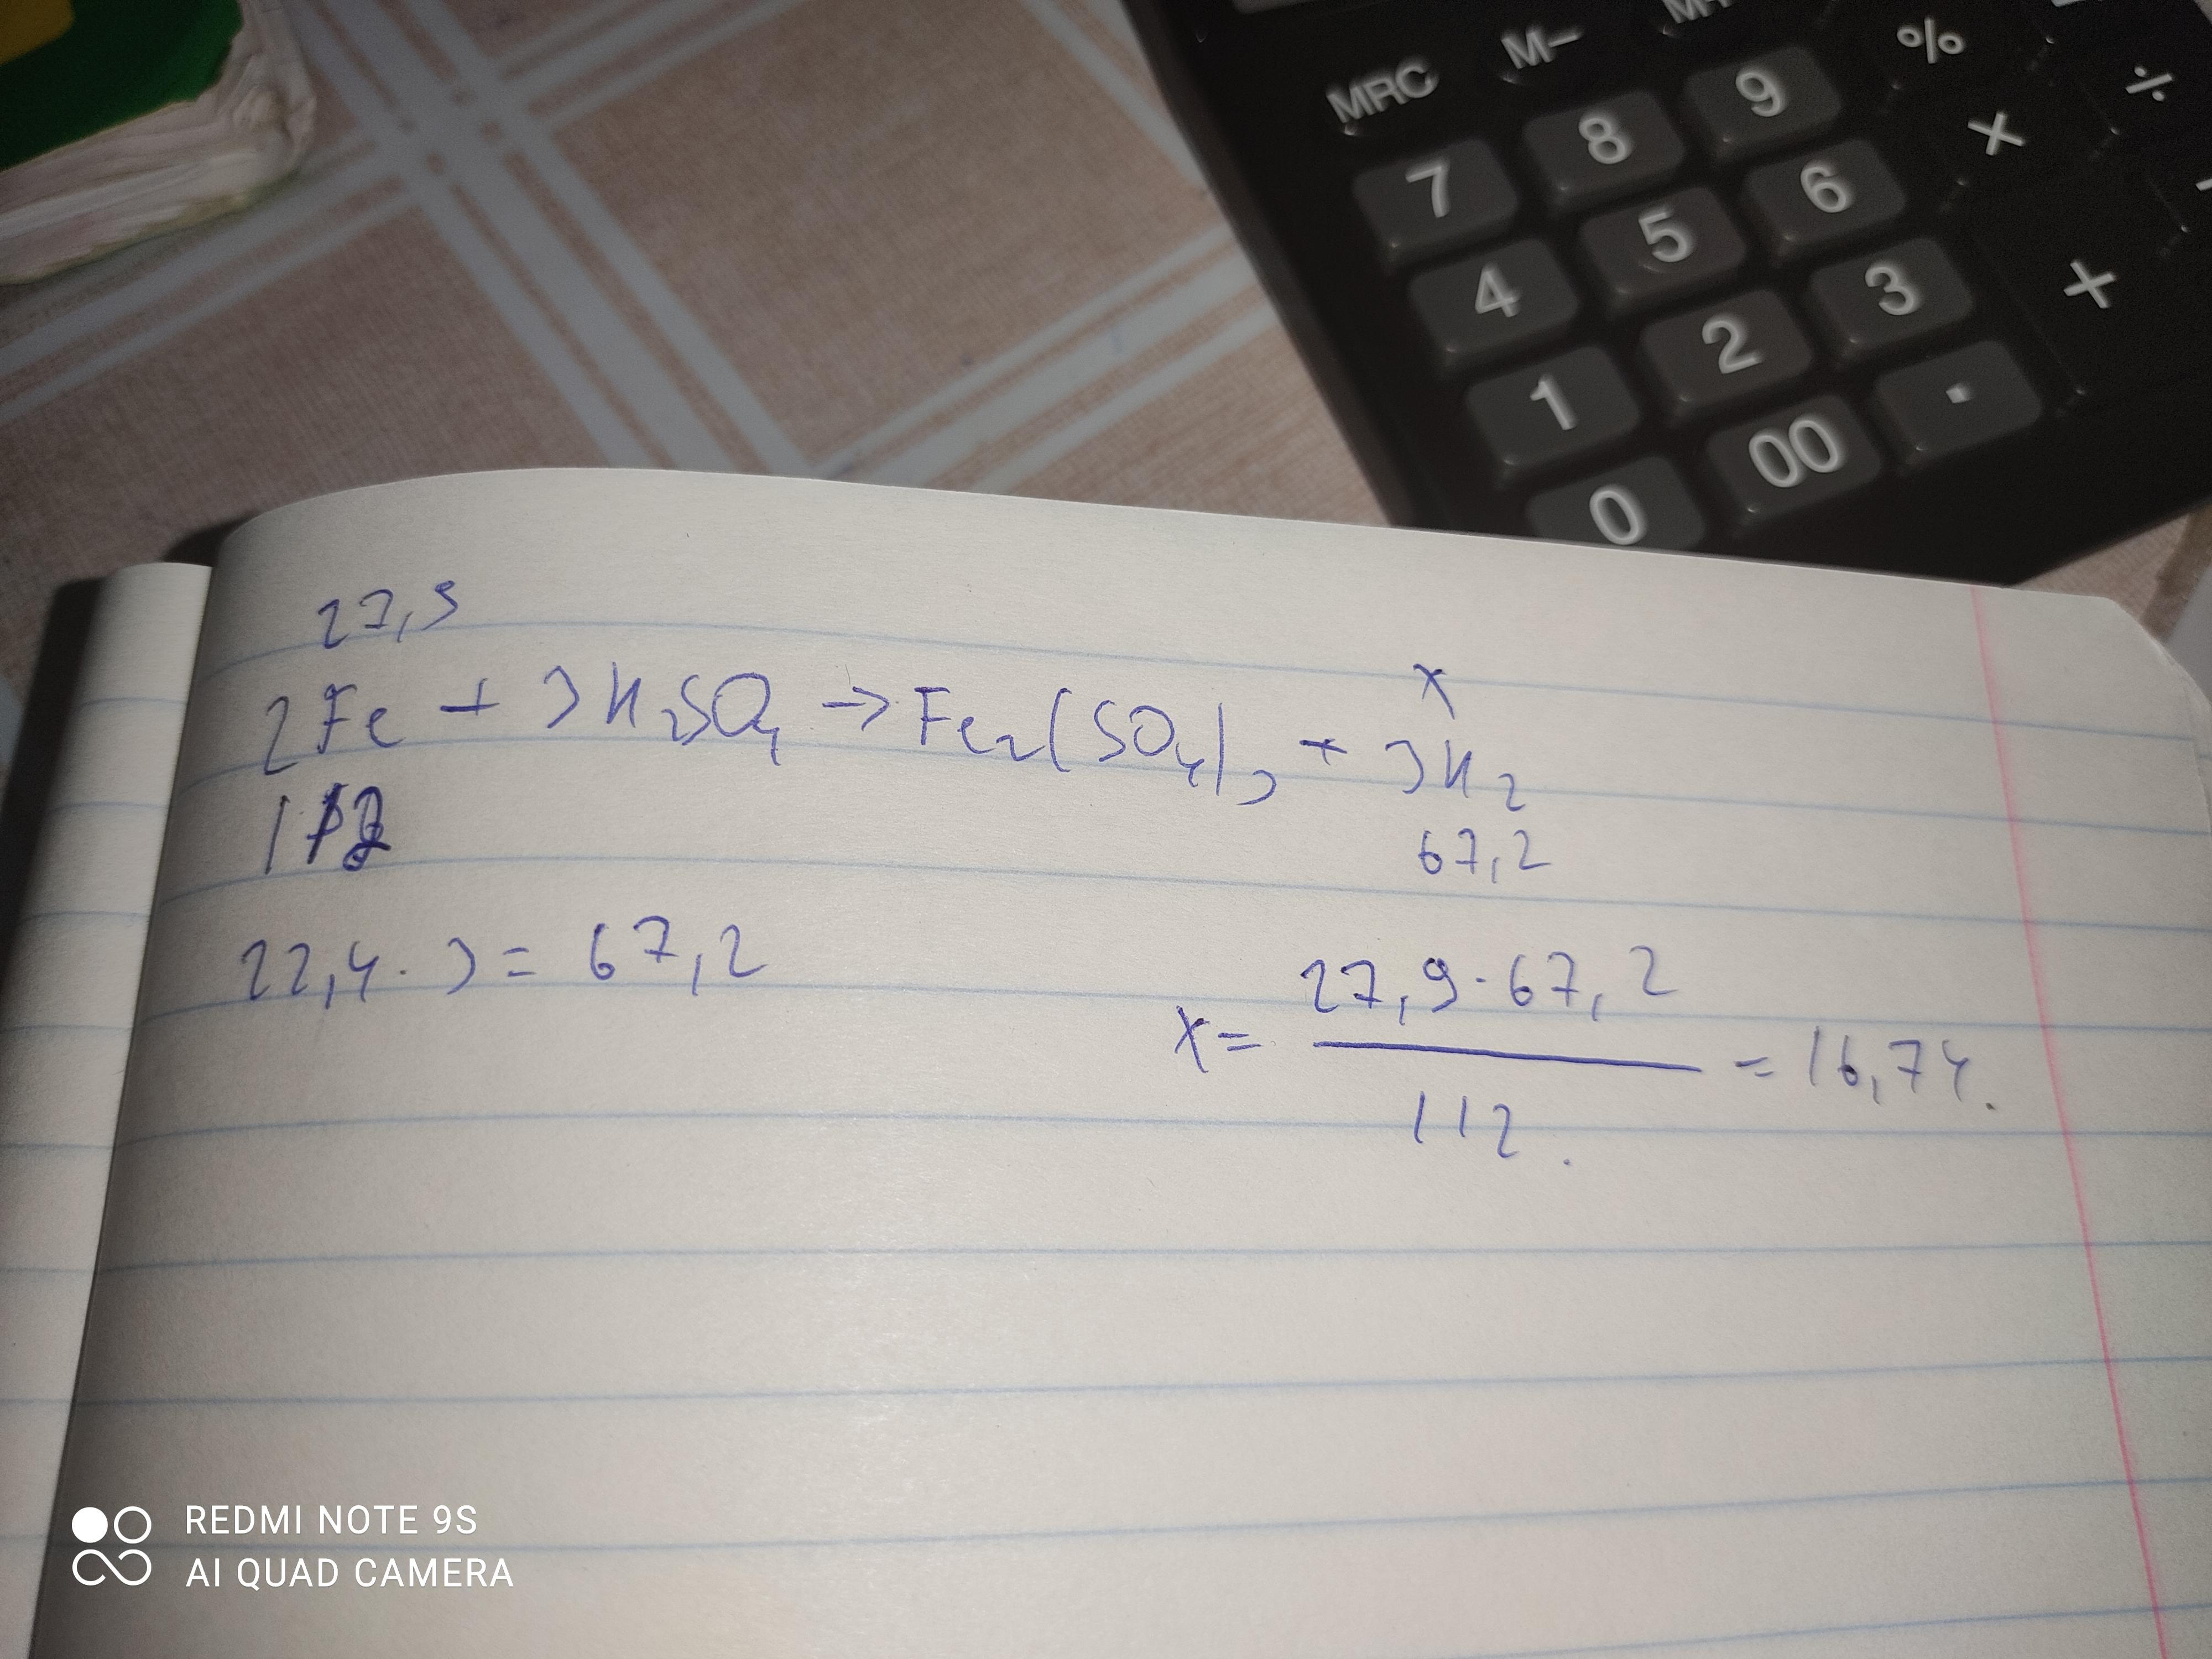 MRC M−
%
÷
7 8 9
×
4 5 6
+
1 2 3
0 00 .
27,9
x
2Fe + 3H2SO4 → Fe2(SO4)3 + 3H2
112
67,2
22,4 · 3 = 67,2
x = 27,9 · 67,2 / 112. = 16,74.
REDMI NOTE 9S
AI QUAD CAMERA